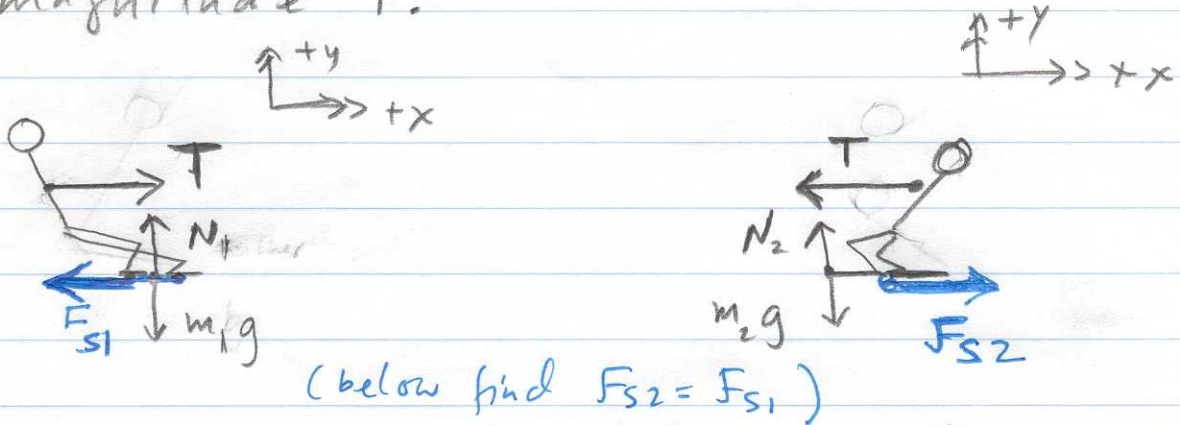 magnitude T.
+y
+x
+y
+x
T
N₁
F_S1
m₁g
T
N₂
m₂g
F_S2
(below find F_S2 = F_S1)